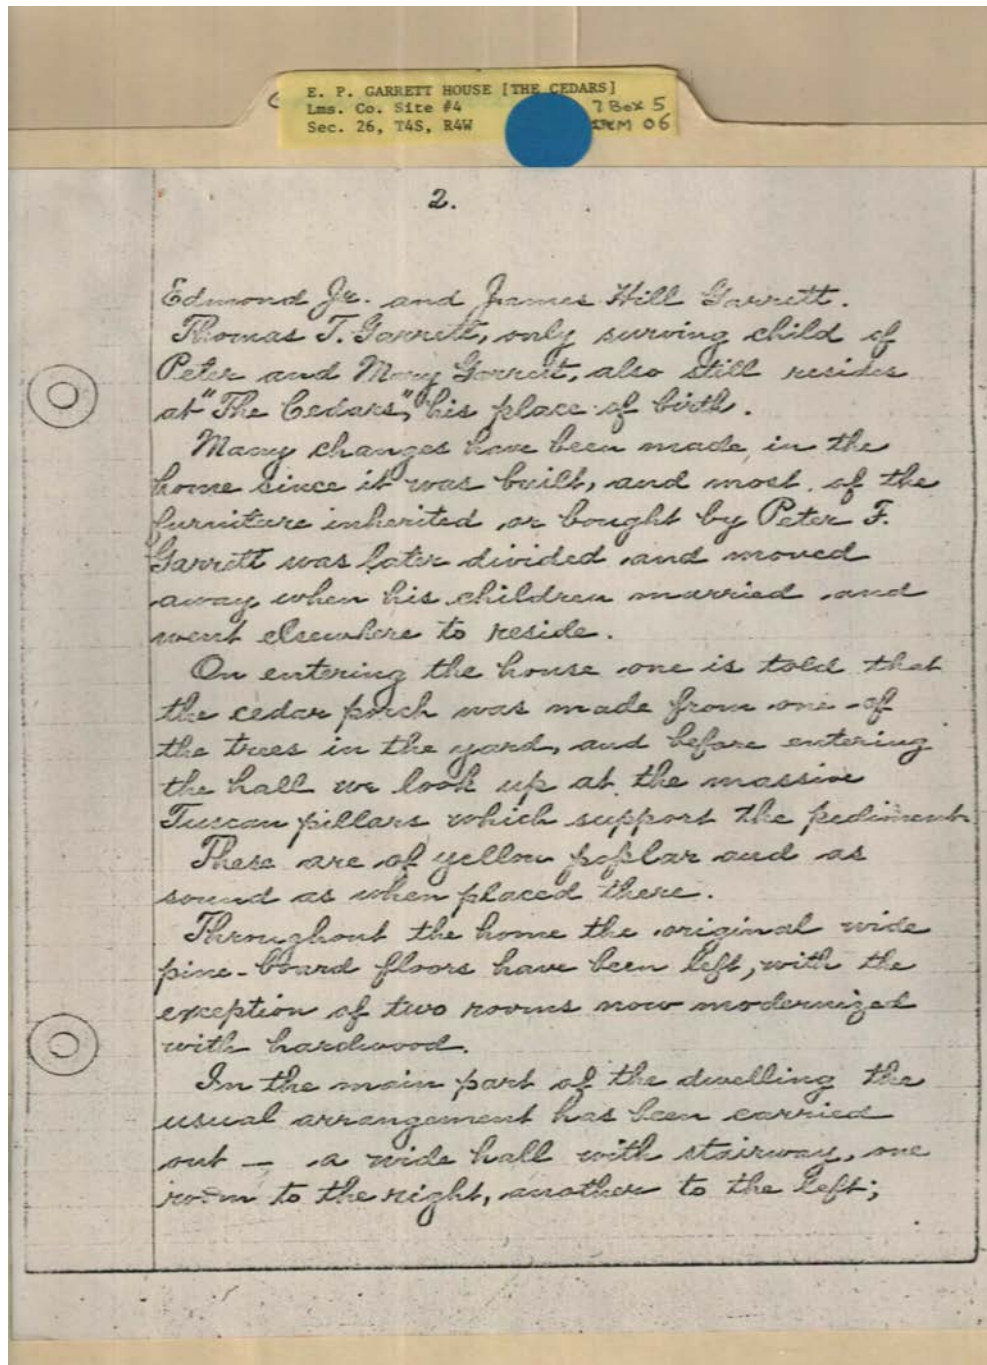 E. P. GARRETT HOUSE [THE CEDARS]
Lms. Co. Site #4 ? Box 5
Sec. 26, T4S, R4W 06
2.
Edmond Jr. and James Hill Garrett.
Thomas T. Garrett, only surving child of
Peter and Mary Garrett, also still resides
at "The Cedars", his place of birth.
Many changes have been made in the
home since it was built, and most of the
furniture inherited or bought by Peter F.
Garrett was later divided and moved
away when his children married and
went elsewhere to reside.
On entering the house one is told that
the cedar porch was made from one of
the trees in the yard, and before entering
the hall we look up at the massive
Tuscan pillars which support the pediment.
These are of yellow poplar and as
sound as when placed there.
Throughout the home the original wide
pine-board floors have been left, with the
exception of two rooms now modernized
with hardwood.
In the main part of the dwelling the
usual arrangement has been carried
out — a wide hall with stairway, one
room to the right, another to the left;